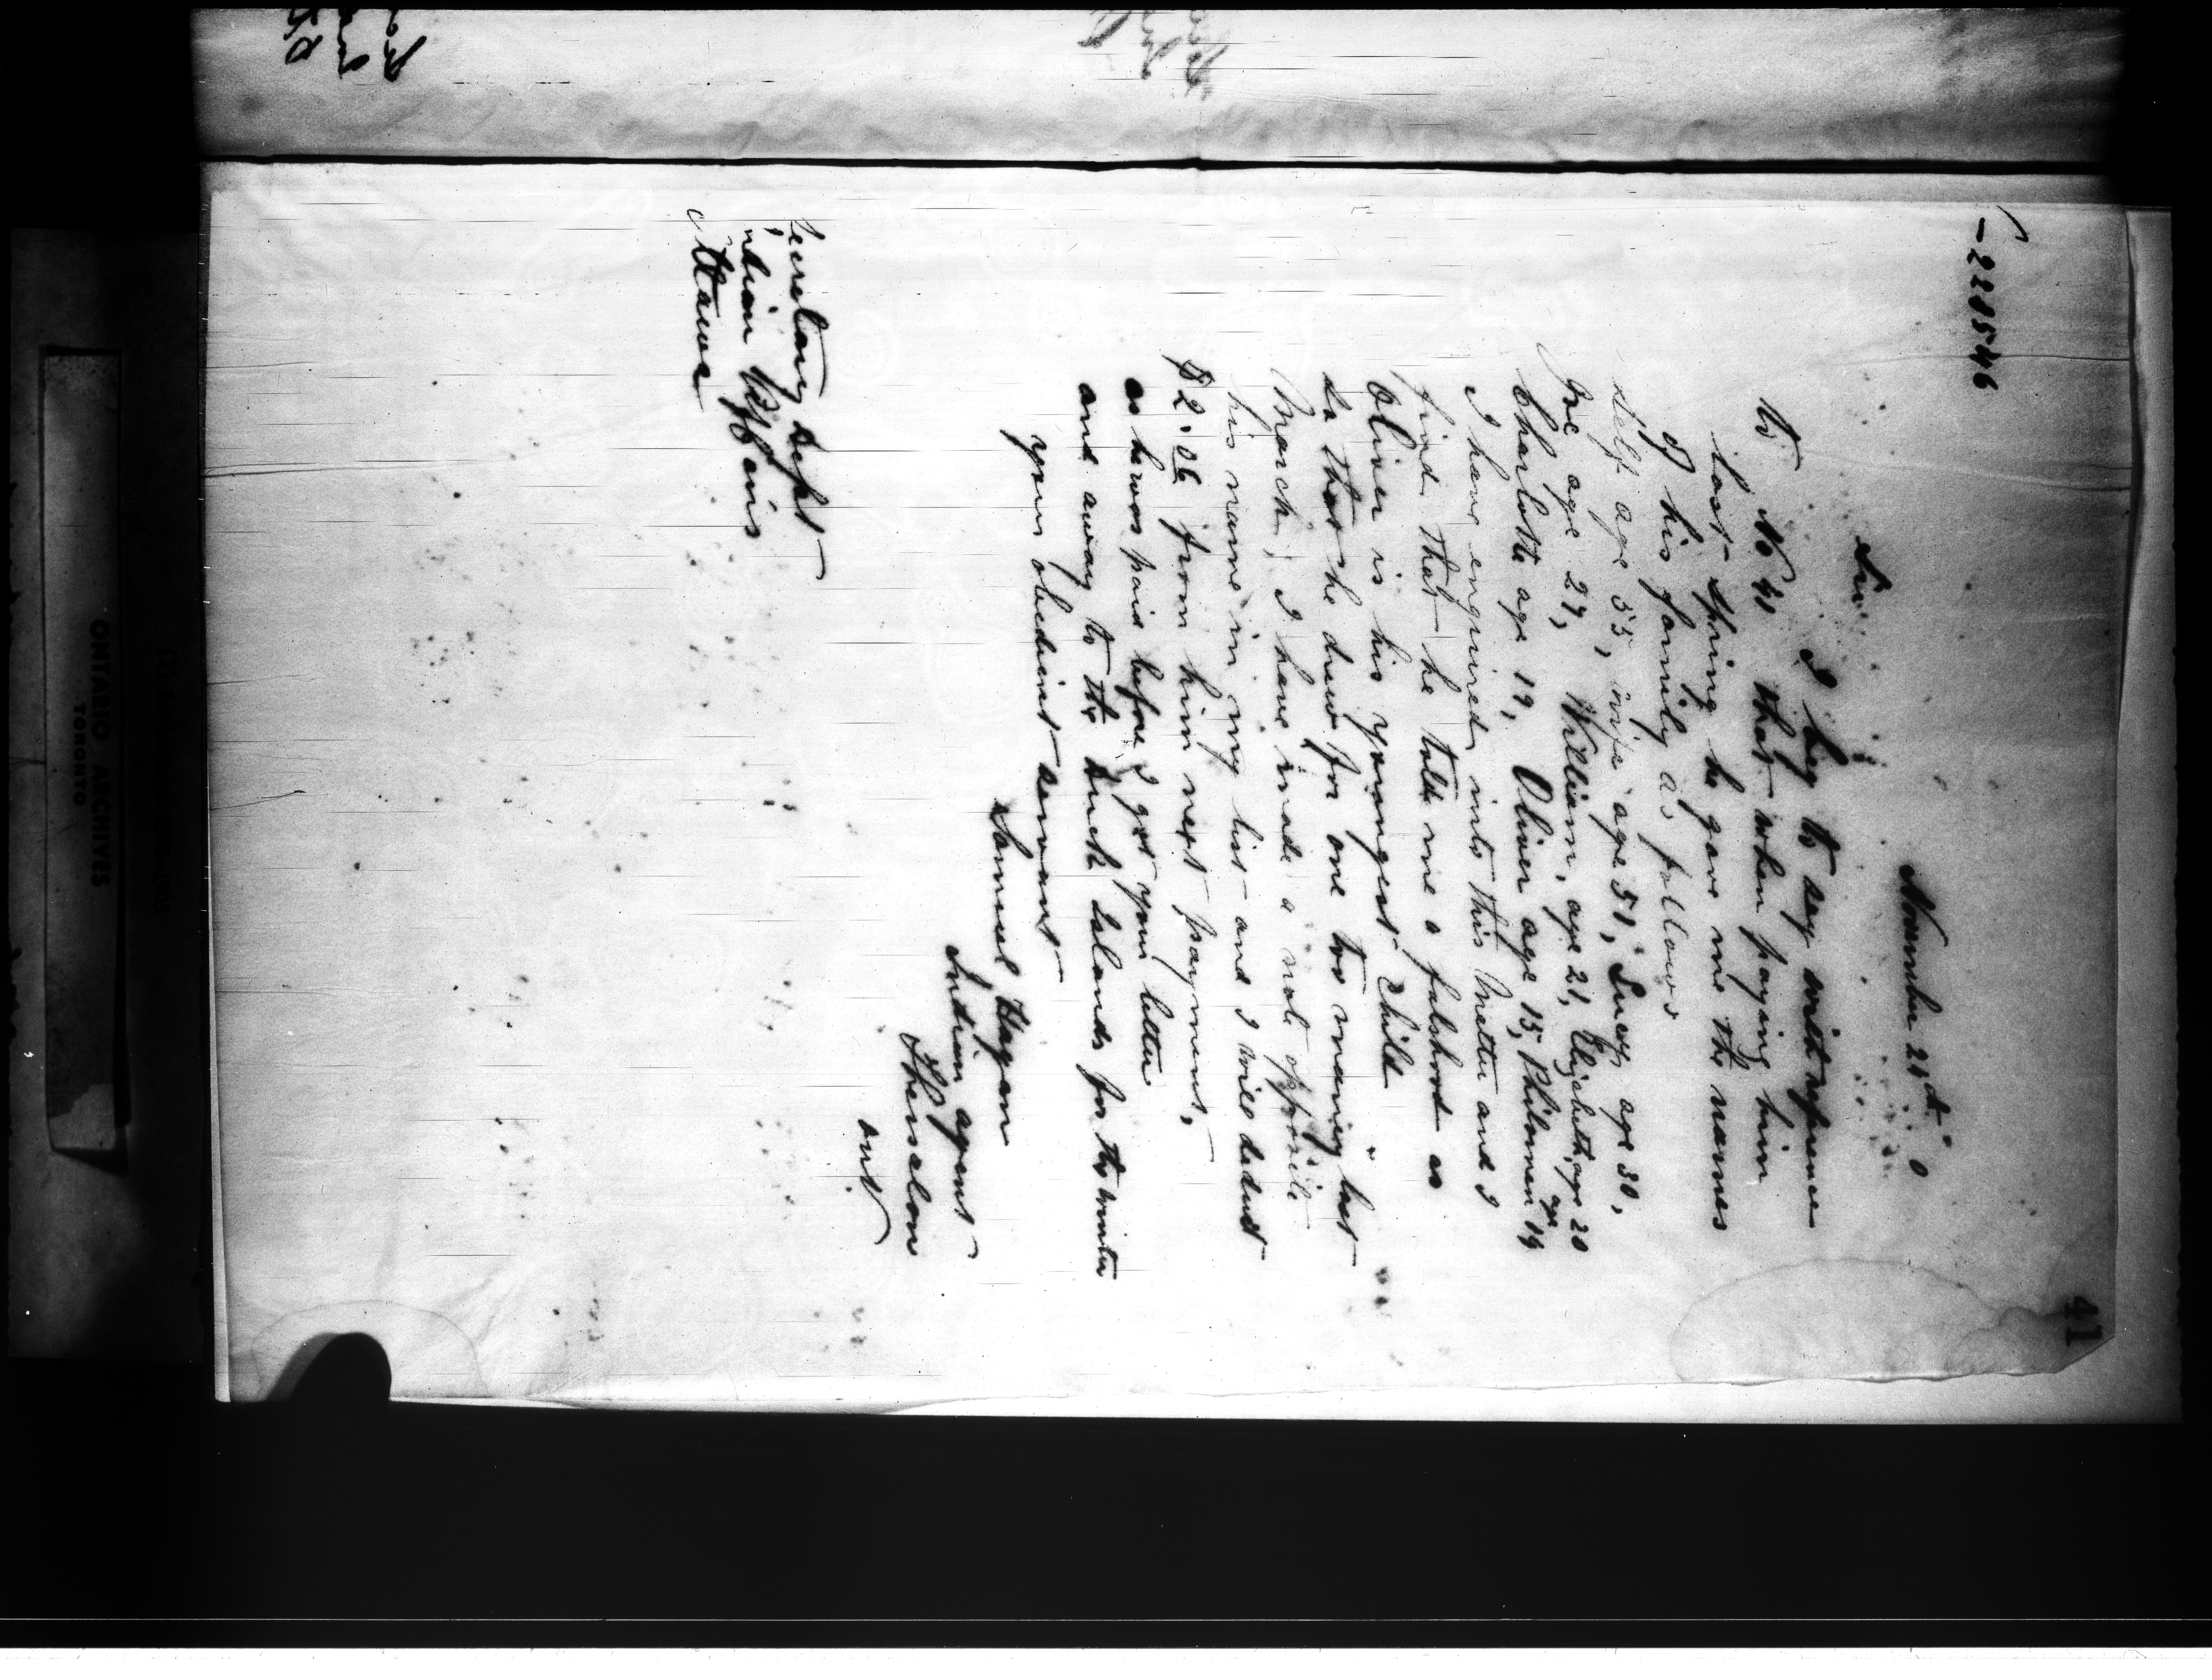 41
-228546
November 21st 0
Sir
I beg to say with reference
to No 41 that when paying him
last Spring he gave me the names
of his family as follows
Self age 55, wife age 51, Lucy age 30,
Joe age 27, William, age 21, Elizabeth, age 20
Charlotte age 19, Oliver age 15, Philomen age 14
I have enquired into this Matter and I
find that he told me a falshood as
Oliver is his youngest Child
So that he drew for one too many last
March, I have made a note opposite
his name in my list and I will deduct
$2.06 from him next payment,
as he was paid before I got your letter
and away to the Duck Islands for the winter
your obedient servant
Samuel Hagan
Indian agent
Thessalon
Ont
Secretary Dept
Indian Affairs
Ottawa
ONTARIO ARCHIVES
TORONTO